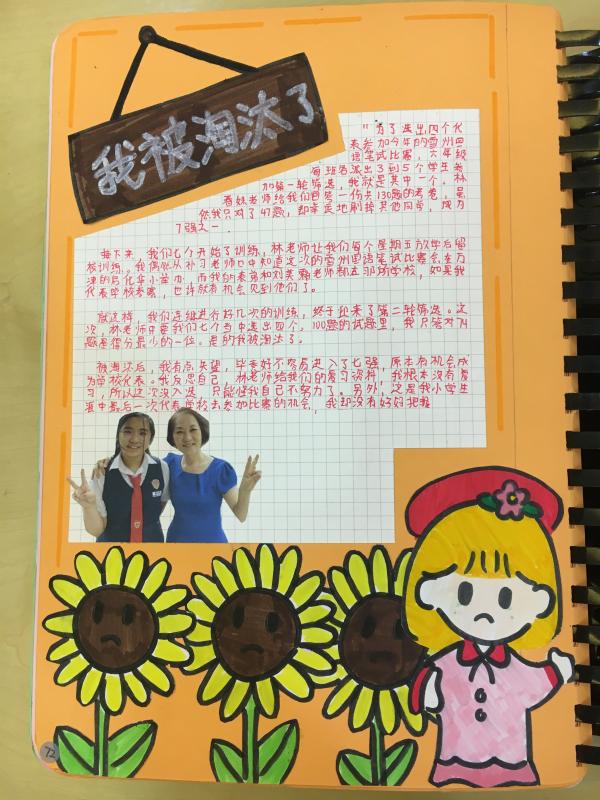 我被淘汰了
"为了选出四个代
表参加今年的雪州国
语笔试比赛，六年级
每班各派出3到5个学生参
加第一轮筛选，我就是其中一个。林
春妹老师给我们每只一份共130题的考卷，虽
然我只对了47题，却幸运地刷掉其他同学，成为
7强之一.
接下来，我们七个开始了训练，林老师让我们每个星期五放学后留
校训练。我偶然从补习老师口中知道这次的雪州国语笔试比赛会在万
津的启化华小举办，而我的表弟和刘芙霜老师都在那所学校，如果我
代表学校参赛，也许就有机会见到他们了。
就这样，我们连续进行好几次的训练，终于迎来了第二轮筛选。这
次，林老师只要我们七个当中选出四个。100题的试题里，我只答对74
题是得分最少的一位。是的我被淘汰了。
被淘汰后，我有点失望，毕竟好不容易进入了七强，原本有机会成
为学校代表。我反思自己，林老师给我们的复习资料，我根本没有复
习，所以这次没入选，只能怪我自己不努力了。另外，这是我小学生
涯中最后一次代表学校去参加比赛的机会，我却没有好好把握
72